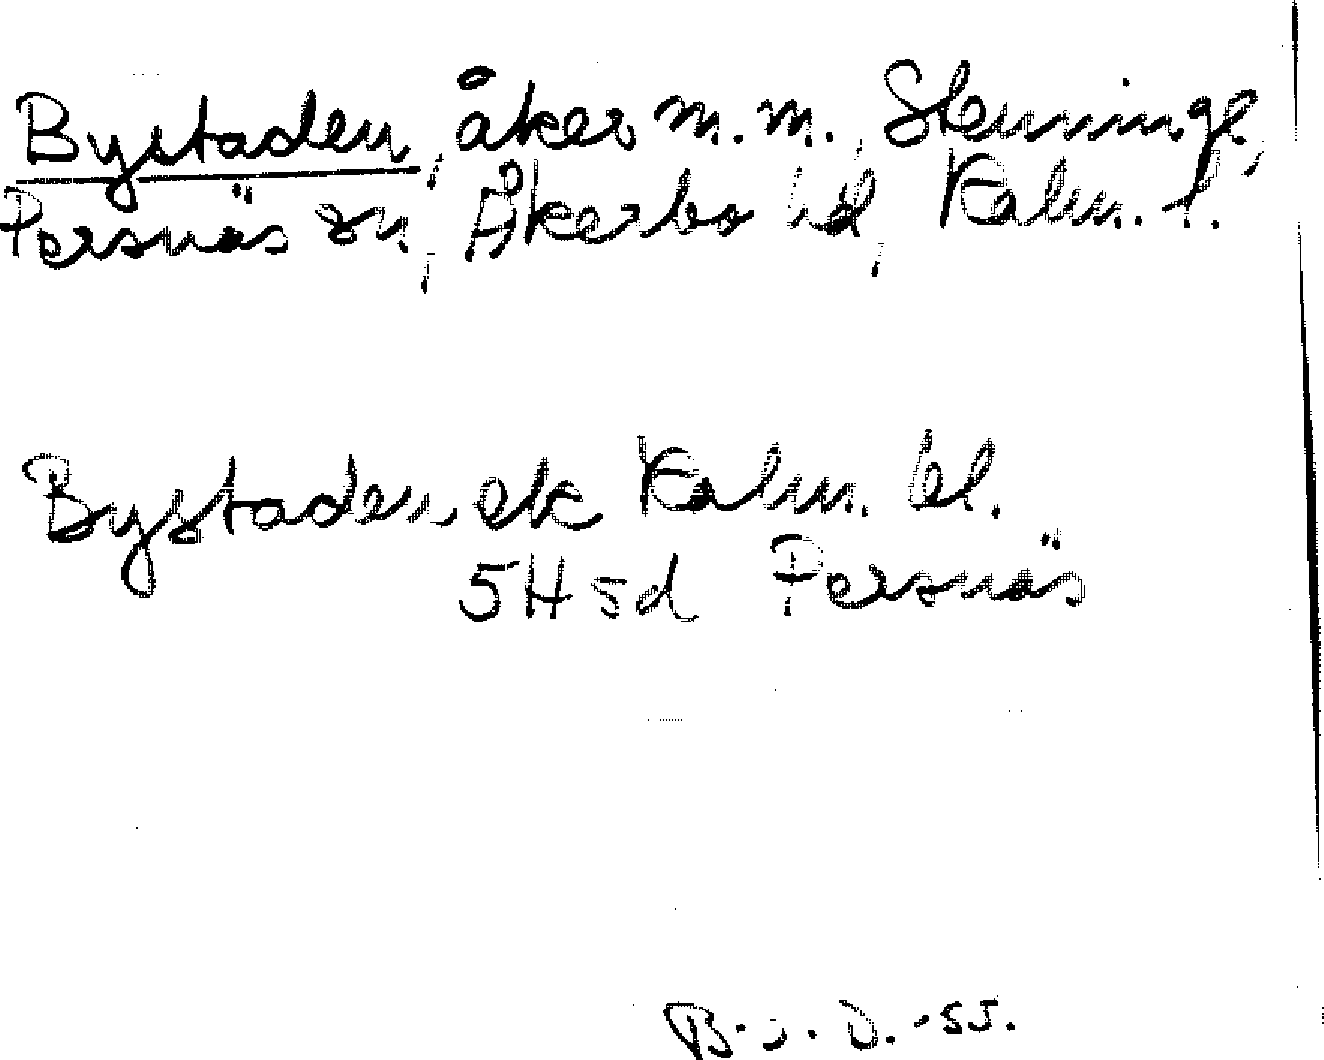 Bystaden, åker m.m., Stenninge,
Persnäs sn, Åkerbo hd, Kalm. l.
Bystaden, ek Kalm. bl.
5H 5d Persnäs
B.J.D. -55.